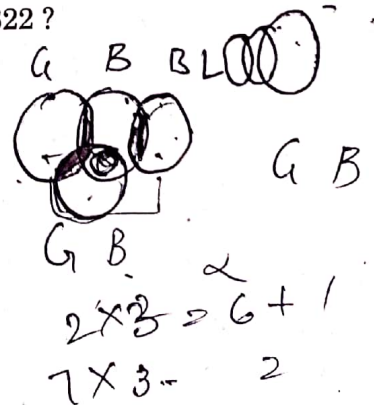 322 ?
G B BL
G B
G B
2×3 = 6 + 1
7×3- 2